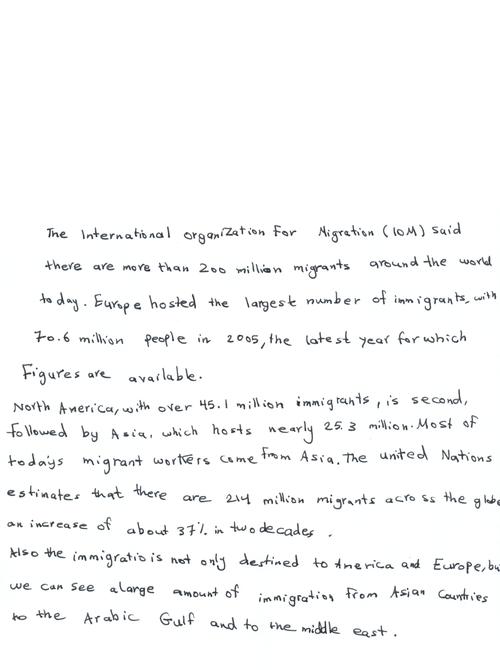 The International organization For Migration (IOM) said
there are more than 200 million migrants around the world
today. Europe hosted the largest number of immigrants, with
70.6 million people in 2005, the latest year for which
Figures are available.
North America, with over 45.1 million immigrants, is second,
followed by Asia, which hosts nearly 25.3 million. Most of
today's migrant workers come from Asia. The united Nations
estimates that there are 214 million migrants across the globe
an increase of about 37% in two decades.
Also the immigratio is not only destined to America and Europe, bu
we can see alarge amount of immigration from Asian Countries
to the Arabic Gulf and to the middle east.